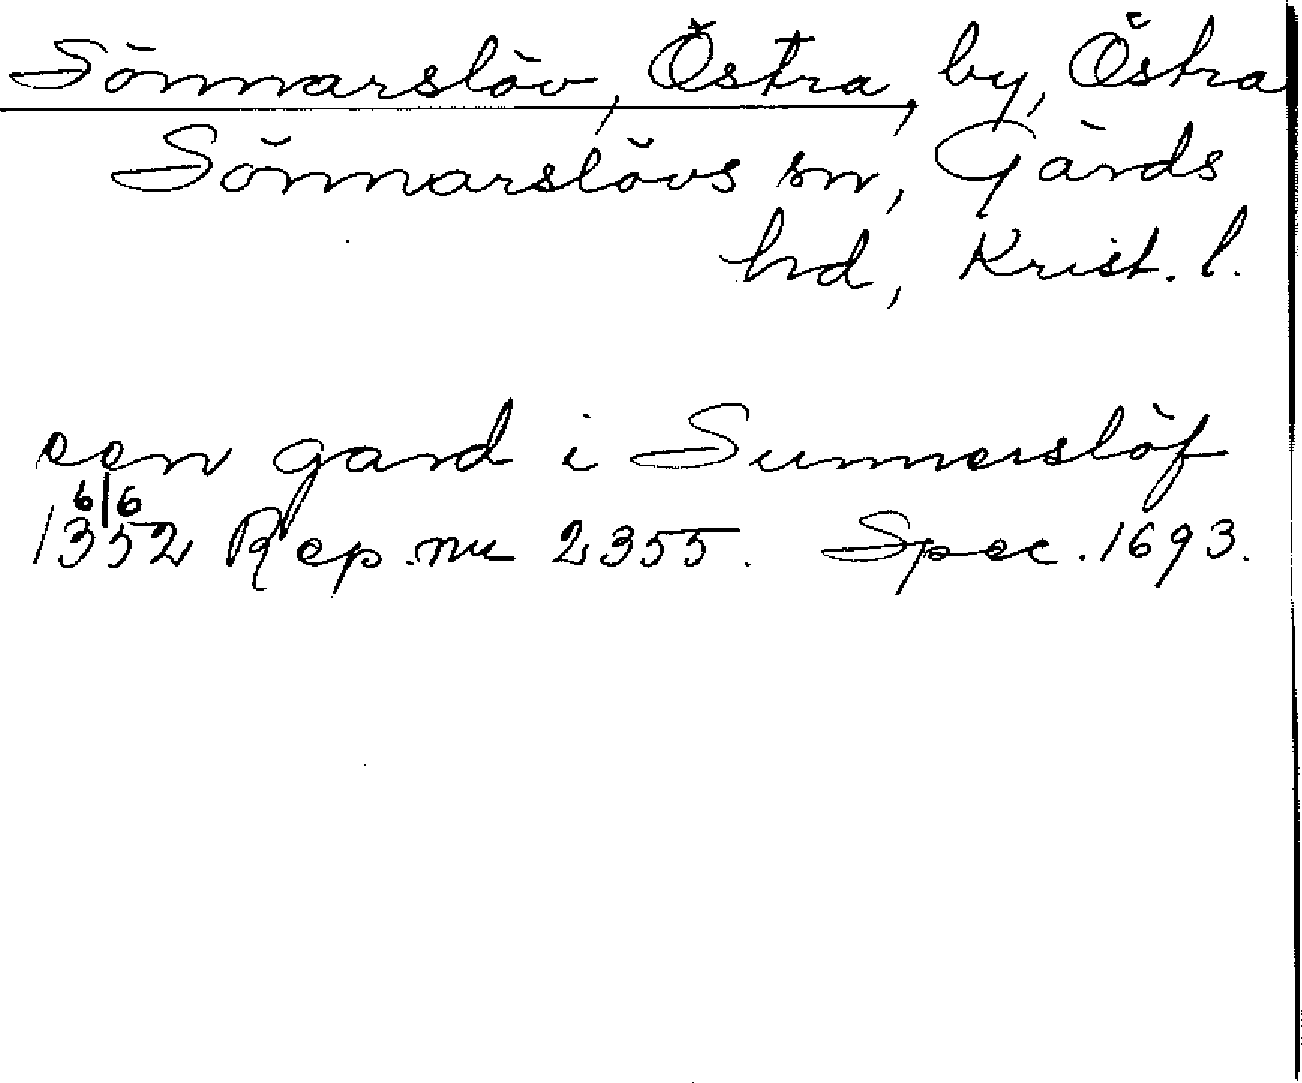 Sönnarslöv, Östra, by, Östra
Sönnarslövs sn, Gärds
hd, Krist. l.
een gard i Sunnerslöf
6/6
1352 Rep. nu 2355. Spec. 1693.